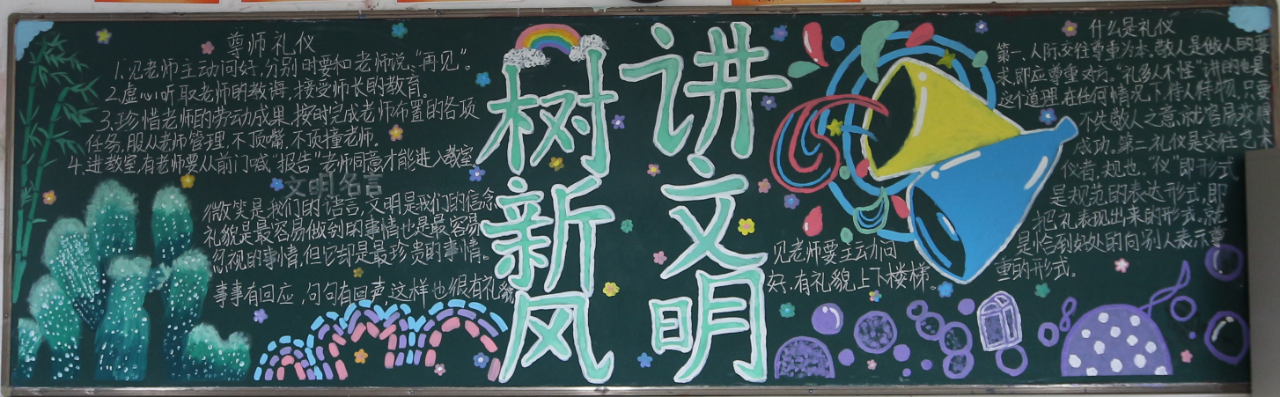 尊师礼仪
1.见老师主动问好,分别时要和老师说:“再见”。
2.虚心听取老师的教诲,接受师长的教育。
3.珍惜老师的劳动成果,按时完成老师布置的各项
任务,服从老师管理,不顶嘴,不顶撞老师。
4.进教室有老师要从前门喊“报告”老师同意才能进入教室。
文明名言
微笑是我们的语言,文明是我们的信念
礼貌是最容易做到的事情也是最容易
忽视的事情,但它却是最珍贵的事情。
事事有回应,句句有回声,这样也很有礼貌
树新风
讲文明
见老师要主动问
好,有礼貌上下楼梯。
什么是礼仪
第一,人际交往尊重为本,敬人是做人的要
求,即应尊重对方。“礼多人不怪”讲的也是
这个道理,在任何情况下待人接物,只要
不失敬人之意,就容易获得
成功,第二礼仪是交往之
仪者,规也。“仪”即形式
是规范的表达形式,即
把礼表现出来的形式,就
是恰到好处的向别人表示尊
重的形式。